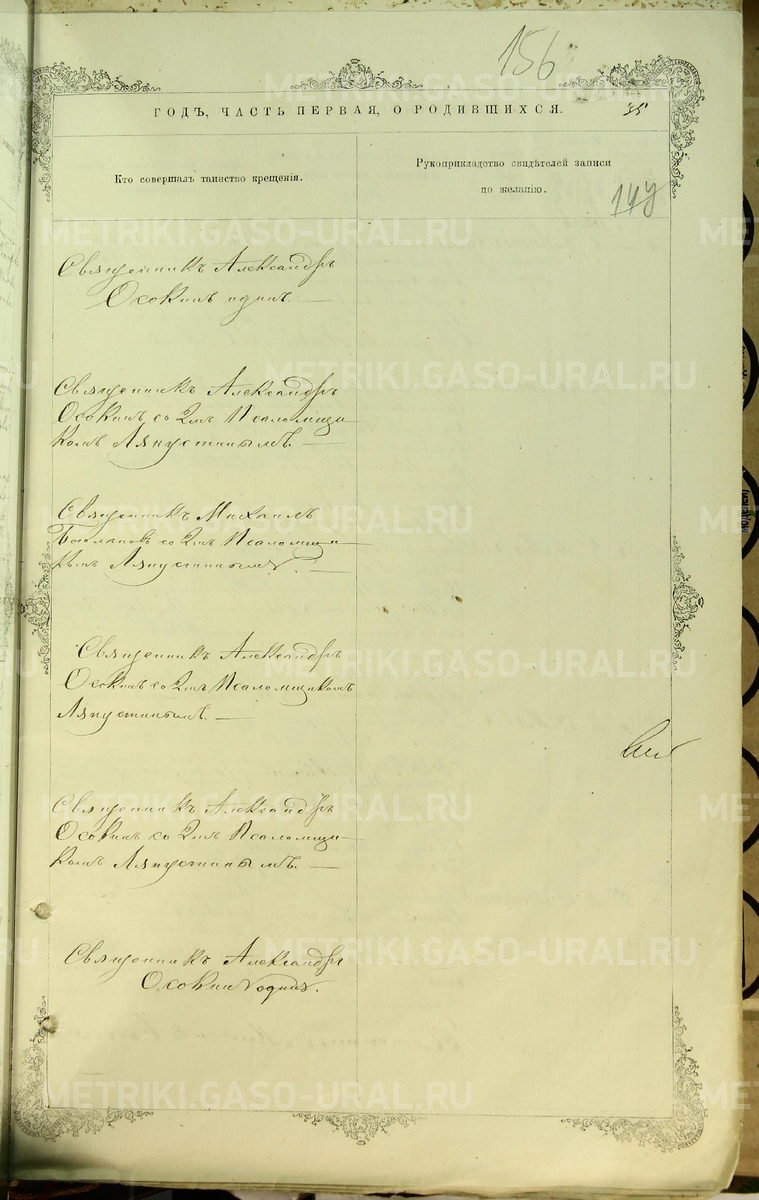 156
ГОДЪ, ЧАСТЬ ПЕРВАЯ, О РОДИВШИХСЯ.
35
Кто совершалъ таинство крещенія.
Рукоприкладство свидѣтелей записи
по желанію.
METRIKI.GASO-URAL.RU
Священникъ Александръ
Осокинъ одинъ. —
Священникъ Александръ
Осокинъ со 2мъ Псаломщи-
комъ Ляпустинымъ. —
Священникъ Михаилъ
со 2мъ Псаломщи-
комъ Ляпустинымъ. —
Священникъ Александръ
Осокинъ со 2мъ Псаломщикомъ
Ляпустинымъ. —
Священникъ Александръ
Осокинъ со 2мъ Псаломщи-
комъ Ляпустинымъ. —
Священникъ Александръ
Осокинъ одинъ.